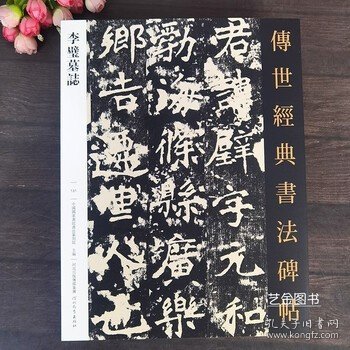 傳世經典書法碑帖
君諱璧字元和
勃海條縣廣樂
鄉吉遷世人也
李璧墓誌
艺金图书
孔夫子旧书网
www.kongfz.com